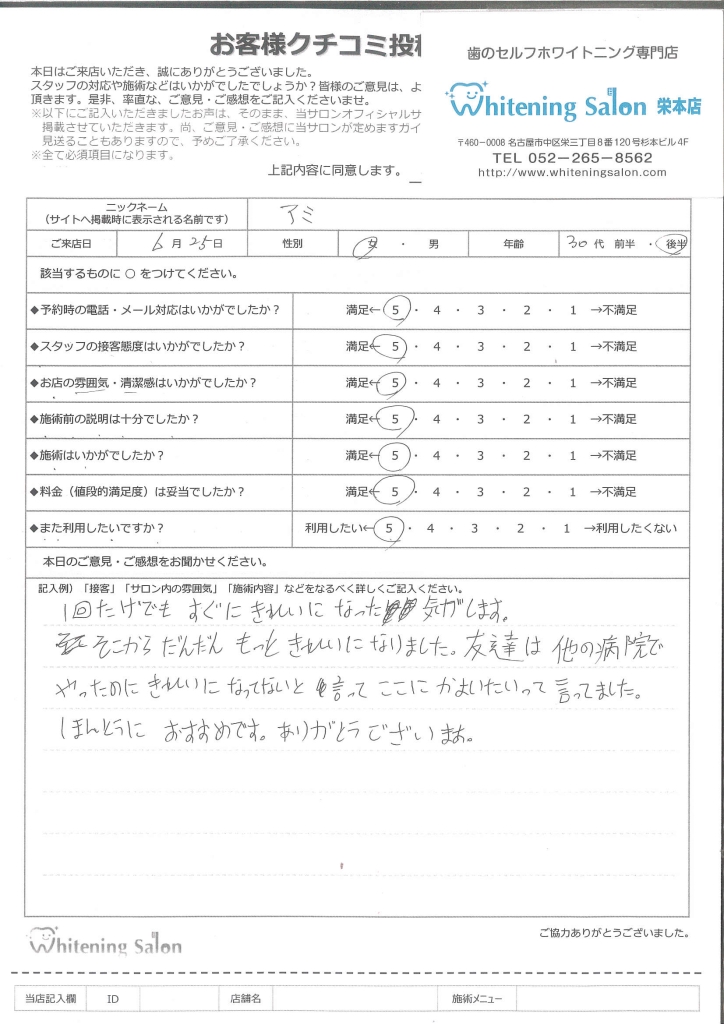 お客様クチコミ投稿
本日はご来店いただき、誠にありがとうございました。
スタッフの対応や施術などはいかがでしたでしょうか？皆様のご意見は、よ
頂きます。是非、率直な、ご意見・ご感想をご記入くださいませ。
※以下にご記入いただきましたお声は、そのまま、当サロンオフィシャルサ
掲載させていただきます。尚、ご意見・ご感想に当サロンが定めますガイ
見送ることもありますので、予めご了承ください。
※全て必須項目になります。
上記内容に同意します。
歯のセルフホワイトニング専門店
Whitening Salon 栄本店
〒460-0008 名古屋市中区栄三丁目8番120号杉本ビル4F
TEL 052-265-8562
http://www.whiteningsalon.com
ニックネーム
（サイトへ掲載時に表示される名前です）
アミ
ご来店日 6月25日 性別 女 ・ 男 年齢 30代 前半 ・ 後半
該当するものに ○ をつけてください。
◆予約時の電話・メール対応はいかがでしたか？ 満足← 5 ・ 4 ・ 3 ・ 2 ・ 1 →不満足
◆スタッフの接客態度はいかがでしたか？ 満足← 5 ・ 4 ・ 3 ・ 2 ・ 1 →不満足
◆お店の雰囲気・清潔感はいかがでしたか？ 満足← 5 ・ 4 ・ 3 ・ 2 ・ 1 →不満足
◆施術前の説明は十分でしたか？ 満足← 5 ・ 4 ・ 3 ・ 2 ・ 1 →不満足
◆施術はいかがでしたか？ 満足← 5 ・ 4 ・ 3 ・ 2 ・ 1 →不満足
◆料金（値段的満足度）は妥当でしたか？ 満足← 5 ・ 4 ・ 3 ・ 2 ・ 1 →不満足
◆また利用したいですか？ 利用したい← 5 ・ 4 ・ 3 ・ 2 ・ 1 →利用したくない
本日のご意見・ご感想をお聞かせください。
記入例）「接客」「サロン内の雰囲気」「施術内容」などをなるべく詳しくご記入ください。
1回だけでも すぐに きれいに なった 気がします。
そこから だんだん もっと きれいに なりました。友達は 他の病院で
やったのに きれいに なってないと 言って ここに かよいたいって 言ってました。
ほんとうに おすすめです。ありがとうございます。
Whitening Salon
ご協力ありがとうございました。
当店記入欄 ID 店舗名 施術メニュー